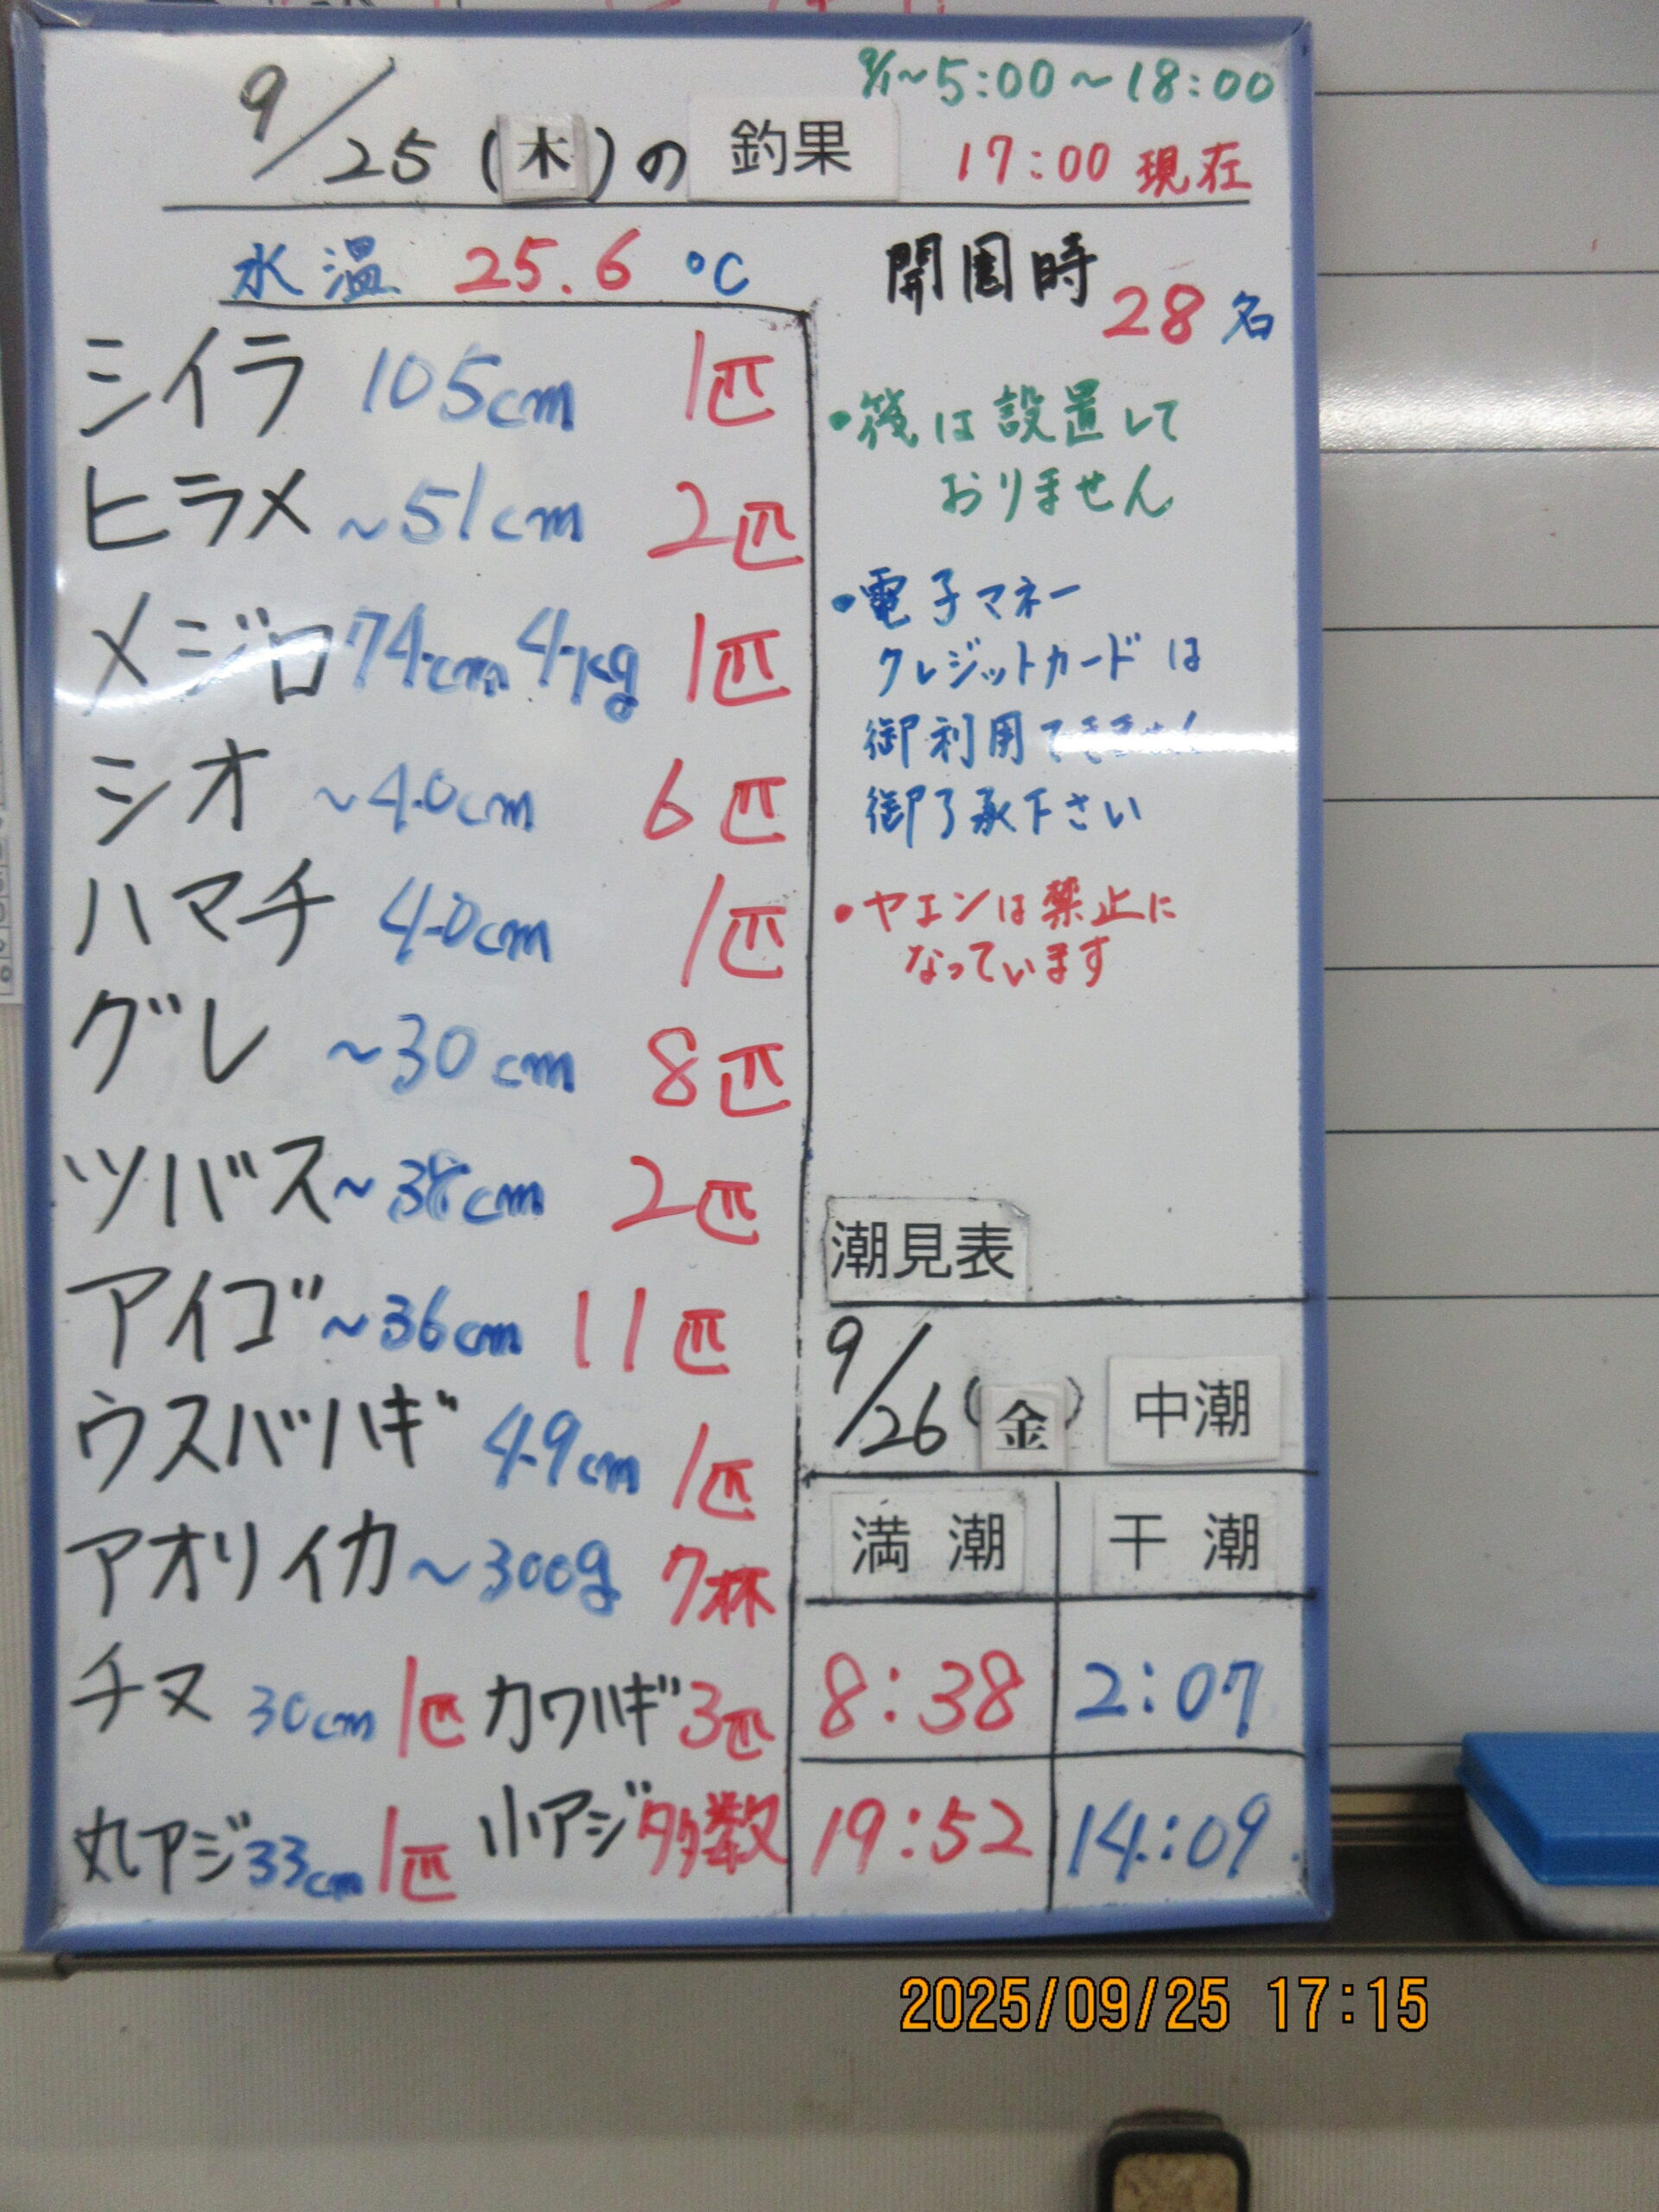 9/1~5:00~18:00
9/25(木)の釣果
17:00 現在
水温 25.6 ℃
シイラ 105cm 1匹
ヒラメ ~51cm 2匹
メジロ 74cm 4kg 1匹
シオ ~40cm 6匹
ハマチ 40cm 1匹
グレ ~30cm 8匹
ツバス ~38cm 2匹
アイゴ ~36cm 11匹
ウスバハギ 49cm 1匹
アオリイカ ~300g 7杯
チヌ 30cm 1匹 カワハギ 3匹
丸アジ 33cm 1匹 小アジ 多数
開園時
28名
・筏は設置して
おりません
・電子マネー
クレジットカードは
御利用できません
御了承下さい
・ヤエンは禁止に
なっています
潮見表
9/26(金) 中潮
満潮 干潮
8:38 2:07
19:52 14:09
2025/09/25 17:15